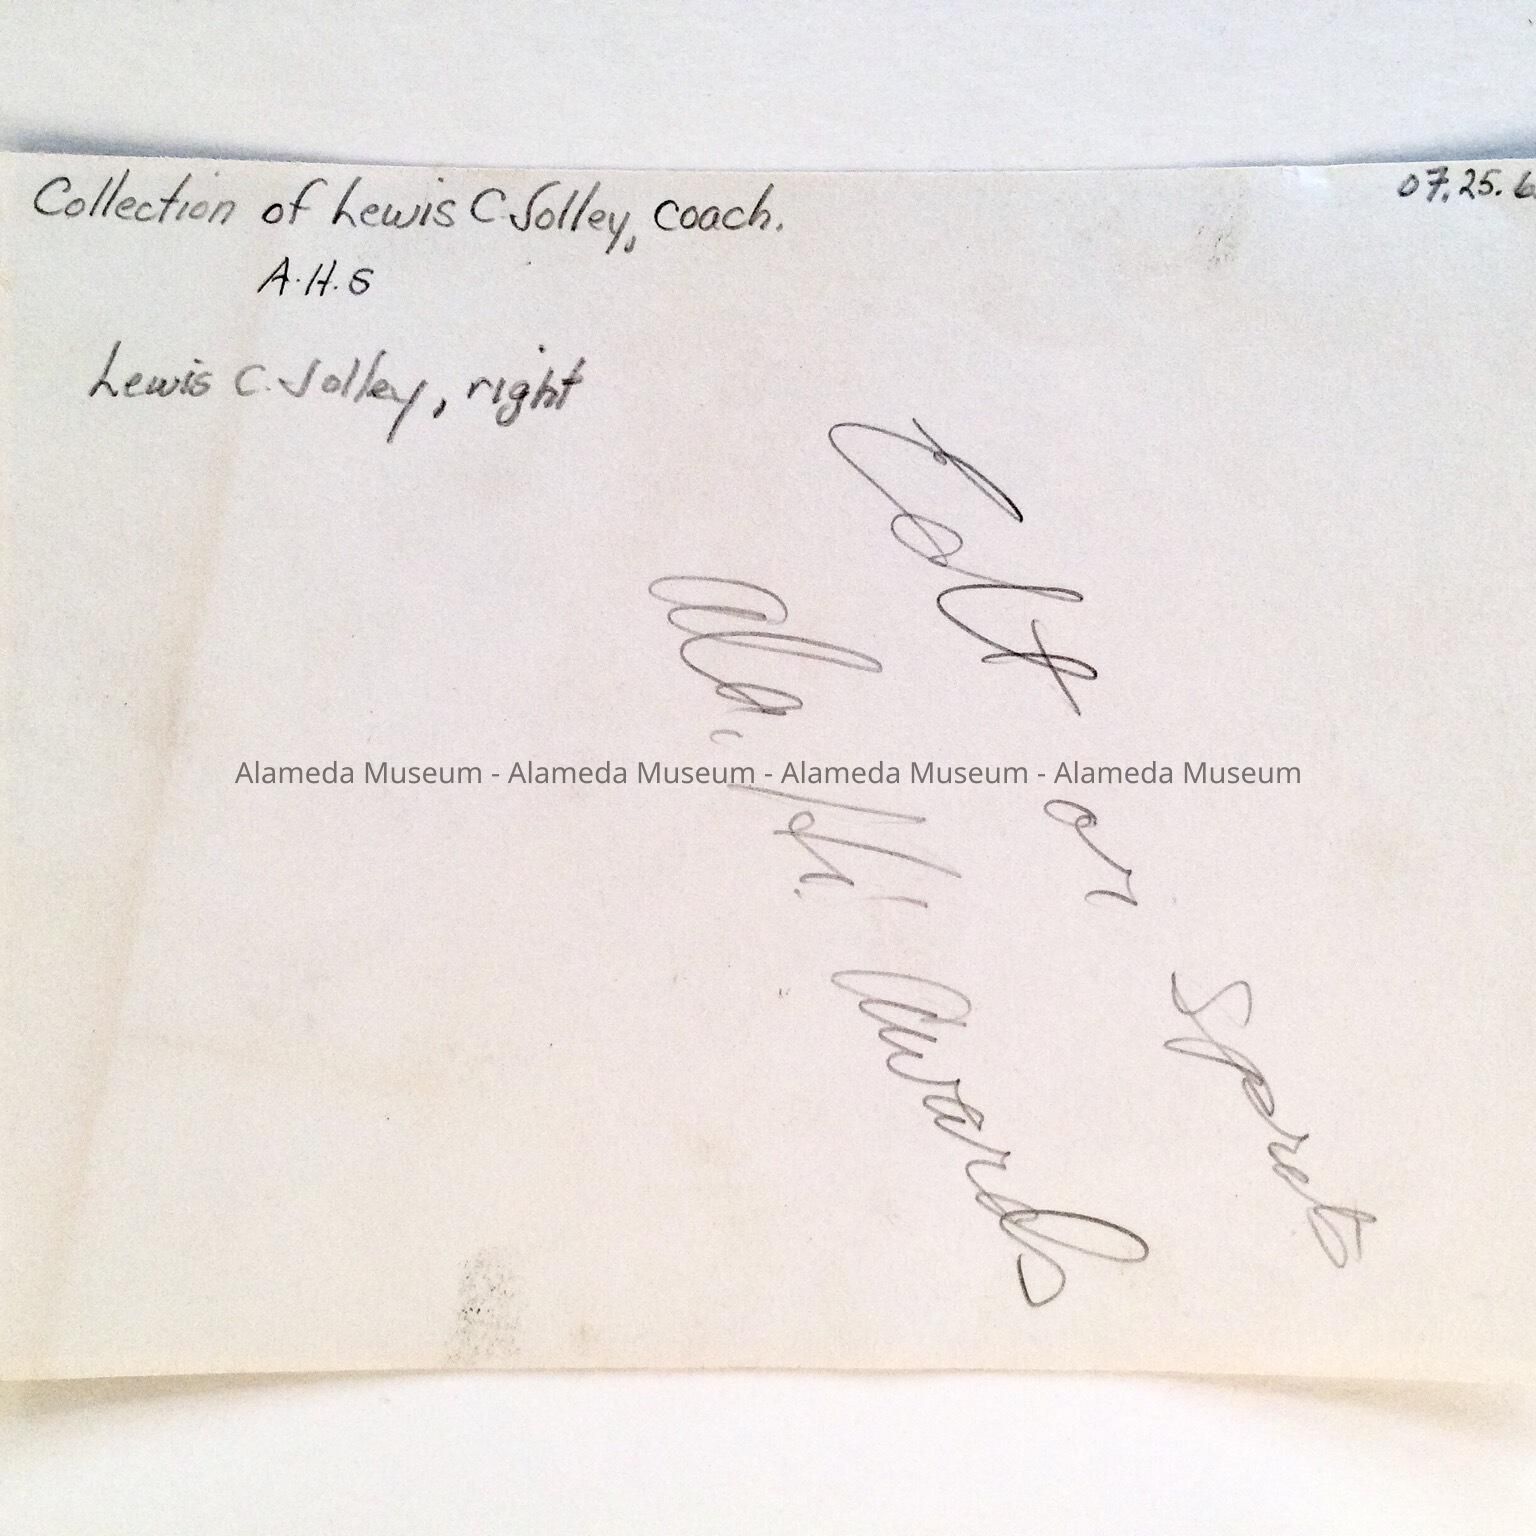 Collection of Lewis C Jolley, coach.
07.25.6
A.H.S
Lewis C. Jolley, right
Colt or
awards
Alameda Museum - Alameda Museum - Alameda Museum - Alameda Museum